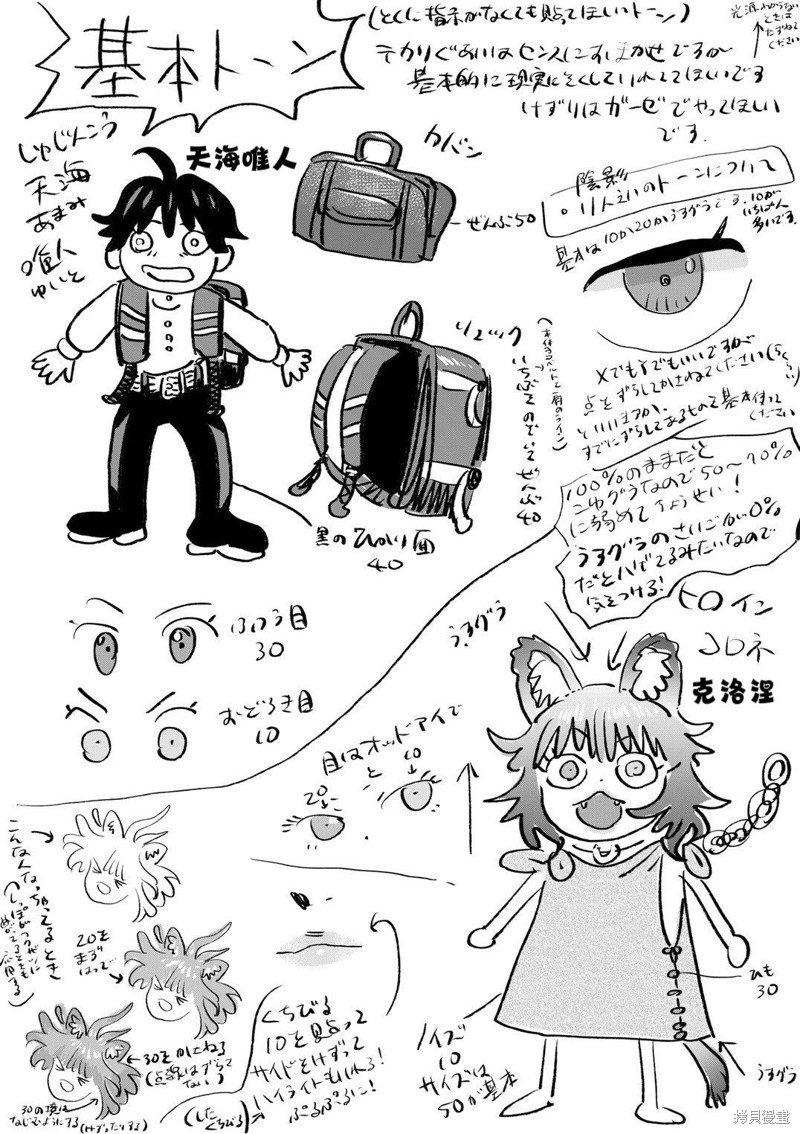 基本トーン
(とくに指示がなくても貼ってほしいトーン)
光源わからない
ときは
たずねて
ください
テカりぐあいはセンスにおまかせですが
基本的に現実にそくしていれてほしいです
けずりはガーゼでやってほしい
です。
しゅじんこう
天海
あまみ
唯人
ゆいと
天海唯人
カバン
ぜんぶ50
陰影
・りんえいのトーンについて
基本は10か20かうすグラです。10が
いちばん
多いです。
リュック
いちぶをのぞいてぜんぶ40
黒のひかり面
40
点をずらしてかさねてください
といいますか、
すでにずらしてあるもので基本使って
ください
100%のままだと
こゆすぎるなので50〜70%
に弱めてちょうせい!
うすグラのさいごが0%
だとハゲてるみたいなので
気をつける!
ふつう目
30
おどろき目
10
うすグラ
ヒロイン
コロネ
克洛涅
目はオッドアイで
20と10
こんな人なっちゃってるとき
20を
まずは
はって
←30をかさねる
(点はずらさ
ない)
30の境は
なじむようにする(けずったりする)
くちびる
10を貼って
サイドをけずって
ハイライトもいれる!
ぷるぷるに!
(したくちびる)
ノイズ
10
サイズは
50が基本
ひも
30
うすグラ
拷貝漫畫